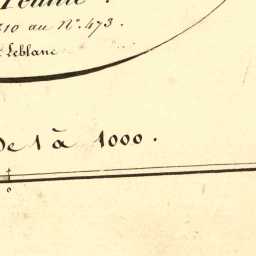 Feuille.
210 au N°. 473.
Leblanc
De 1 à 1000.
0